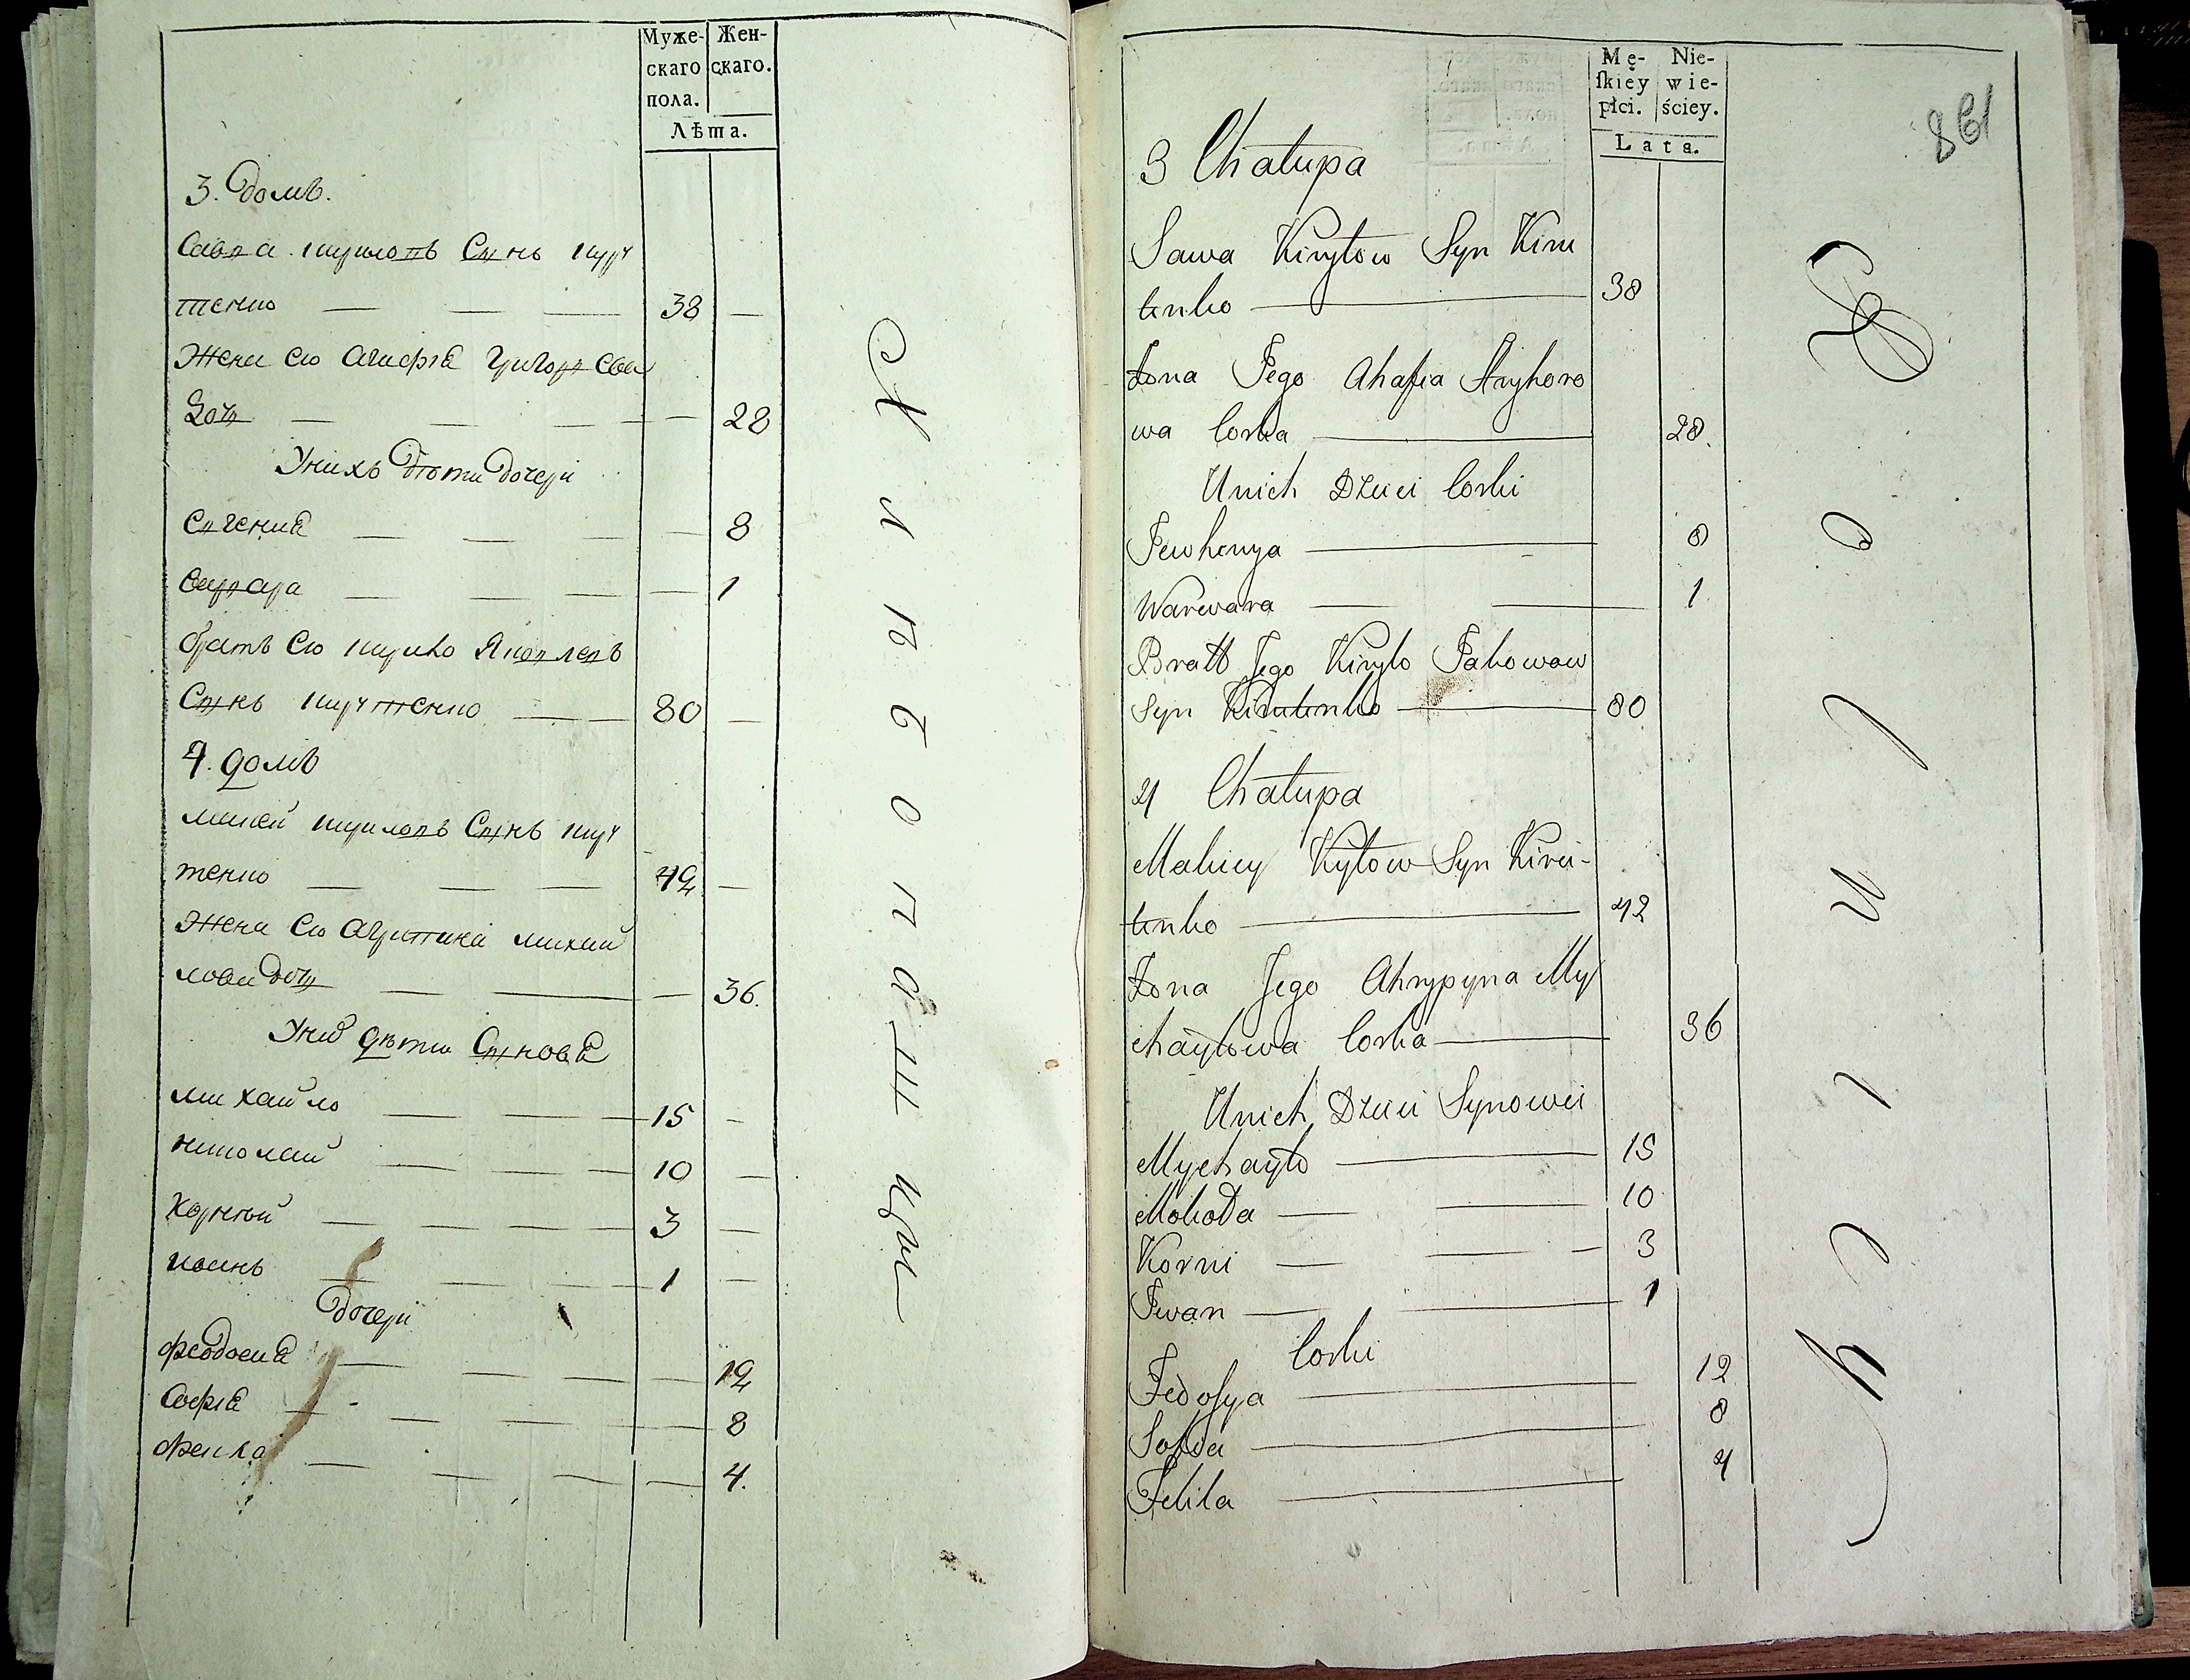 Муже-
скаго
пола.
Жен-
скаго.
Лѣта.
3. домъ.
Савва Кириловъ Сынъ Кири
тенко — — — 38 —
Жена Ею Агафіа Григорьева
Доч — — — — 28
Унихъ дѣти дочери
Евгениа — — — — 8
Варвара — — — — 1
братъ Ею Кирило Яковлевъ
Сынъ Киритенко — — 80 —
4. домъ
Мокей Кириловъ Сынъ Кири
тенко — — — 42 —
Жена Ею Агрипина Михай
лова доч — — — 36.
Уних дѣти Сынова
Михайло — — 15 —
Николай — — — 10 —
Корній — — — — 3 —
Иванъ — — — — 1 —
Дочери
Феодосиа — — — — 12
Софіа — — — — 8
— — — — 4.
Mę-
ſkiéy
płci.
Nie-
wie-
ściey.
Lata.
861
3 Chałupa
Sawa Kiryłow Syn Kiru
tenko — 38
Żona Jego Ahafia Hryhoro
wa Corka — 28.
Unich Dzieci Corki
Jewhenya — 8
Warwara — — 1
Bratt Jego Kiryło Jakowow
Syn Kirutenko — 80
4 Chałupa
Makiey Kyłow Syn Kirei-
tenko — 42
Żona Jego Ahrypyna My
chayłowa Corka — 36
Unich Dzieci Synowei
Mychayło — 15
Mokoła — — 10
Korni — — — 3
Jwan — — 1
Corki
Fedosya — 12
Sofia — 8
— 4